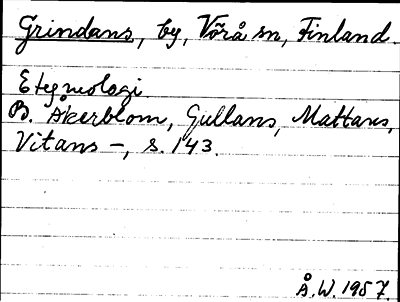 Grindans, by, Vörå sn, Finland.
Etymologi.
B. Åkerblom, Gullans, Mattans,
Vitans –, s. 143.
Å. W. 1957.